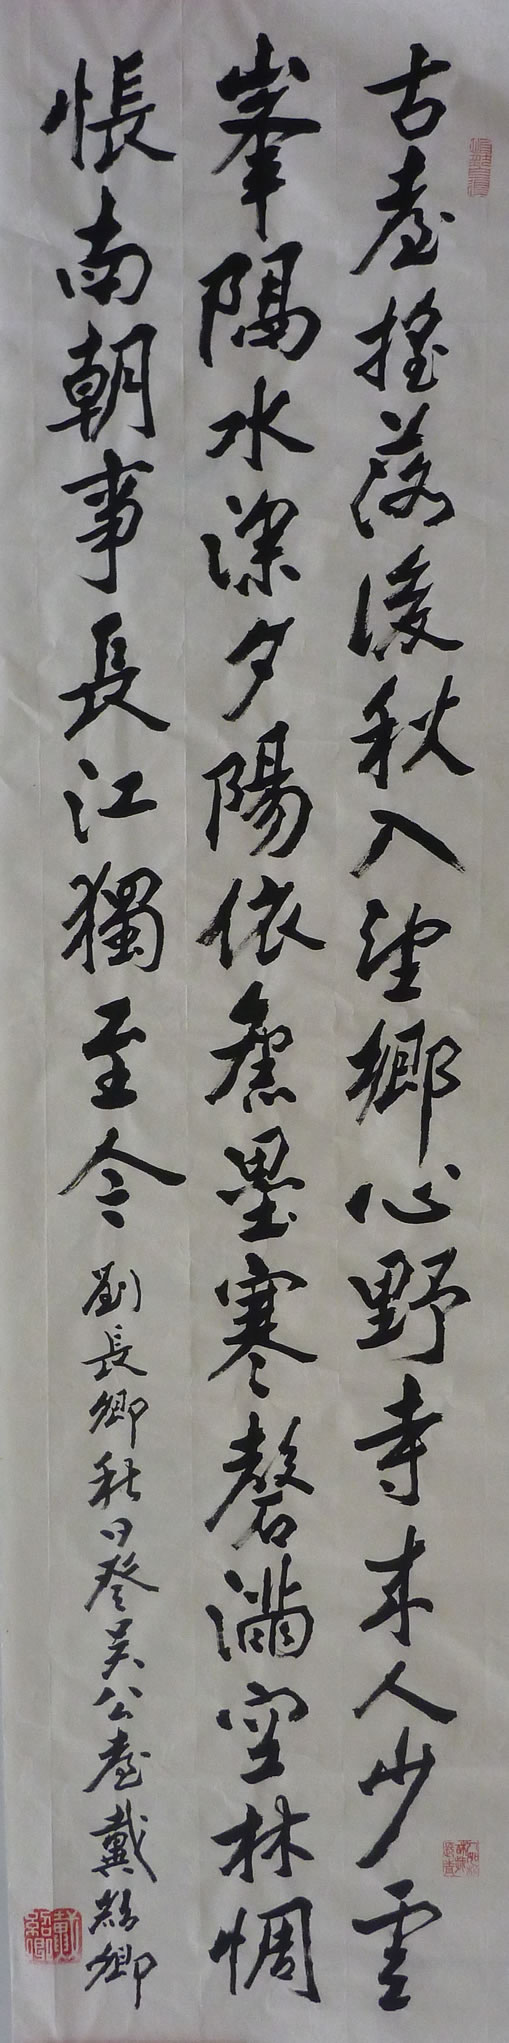 古臺搖落後秋入望鄉心野寺來人少雲
峯隔水深夕陽依舊壘寒磬滿空林惆
悵南朝事長江獨至今 劉長卿秋日登吳公臺戴紹卿